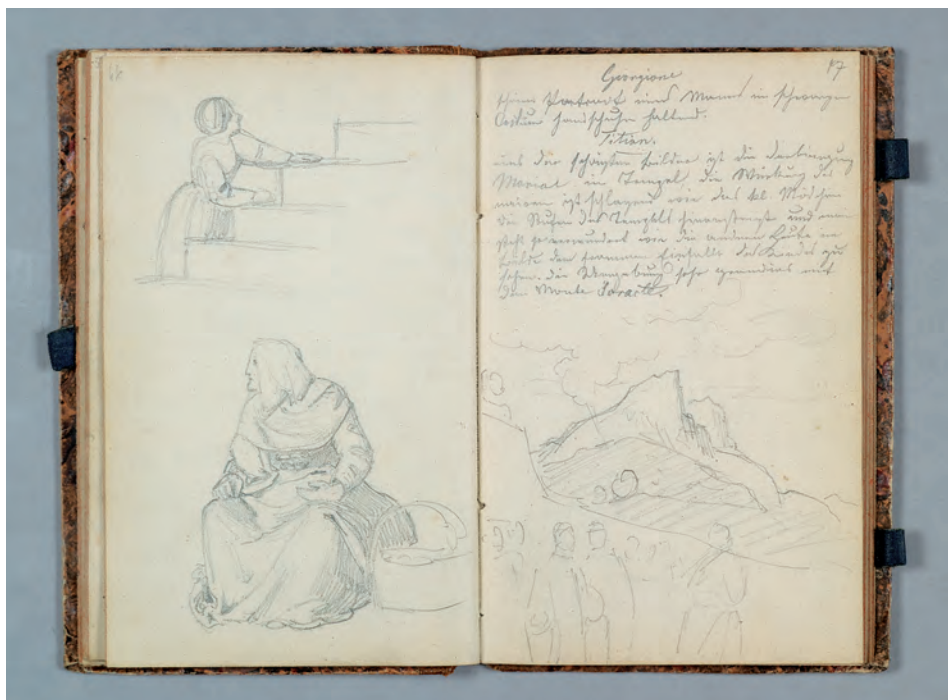 17
Giorgione
schönes Portrait eines Mannes in schwarzem
Costum Handschuhe haltend.
Titian.
eins der schönsten Bilder ist die Darbringung
Mariae im Tempel, die Wirkung des
naiven ist schlagend wie das kl. Mädchen
die Stufen des Tempels hinaufsteigt und man
steht so verwundert wie die andern Leute im
Bilde den frommen des Kindes zu
sehen. die Umgebung sehr grandios mit
dem Monte Soracte.